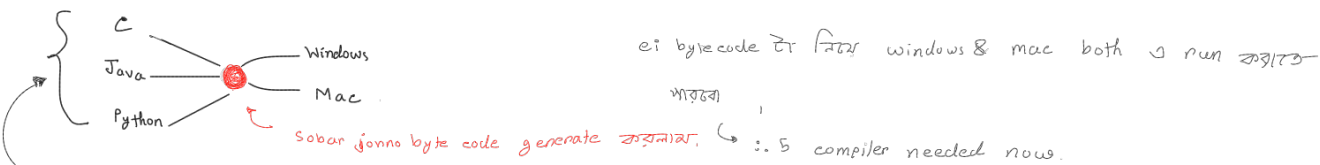 C
Java
Python
Windows
Mac
sobar jonno byte code generate করলাম.
ei bytecode টা নিয়ে windows & mac both এ run করাতে
পারবো
∴ 5 compiler needed now.